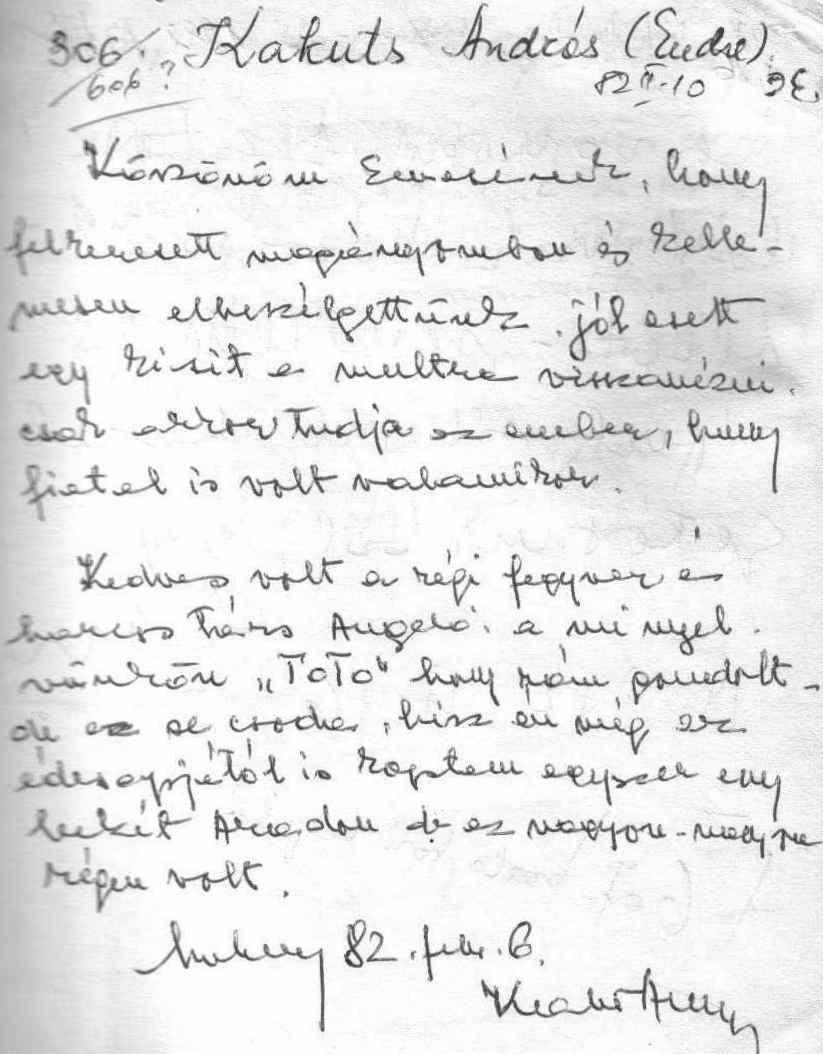 306. Kakuts András (Endre)
606 ? 82 II.10
Köszönöm Emesének, hogy
felkeresett magányomban és kelle-
mesen elbeszélgettünk. jól esett
egy kisit a multra visszanézni.
csak akkor tudja az ember, hogy
fiatal is volt valamikor.
Kedves volt a régi fegyver és
harcos társ Angeló. a mi nyel-
vünkön „ToTo" hogy rám gondolt-
de ez se csoda, hisz én még az
édesapjától is kaptam egyszer egy
lukét Aradon de ez nagyon-nagyon
régen volt.
82. feb. 6.